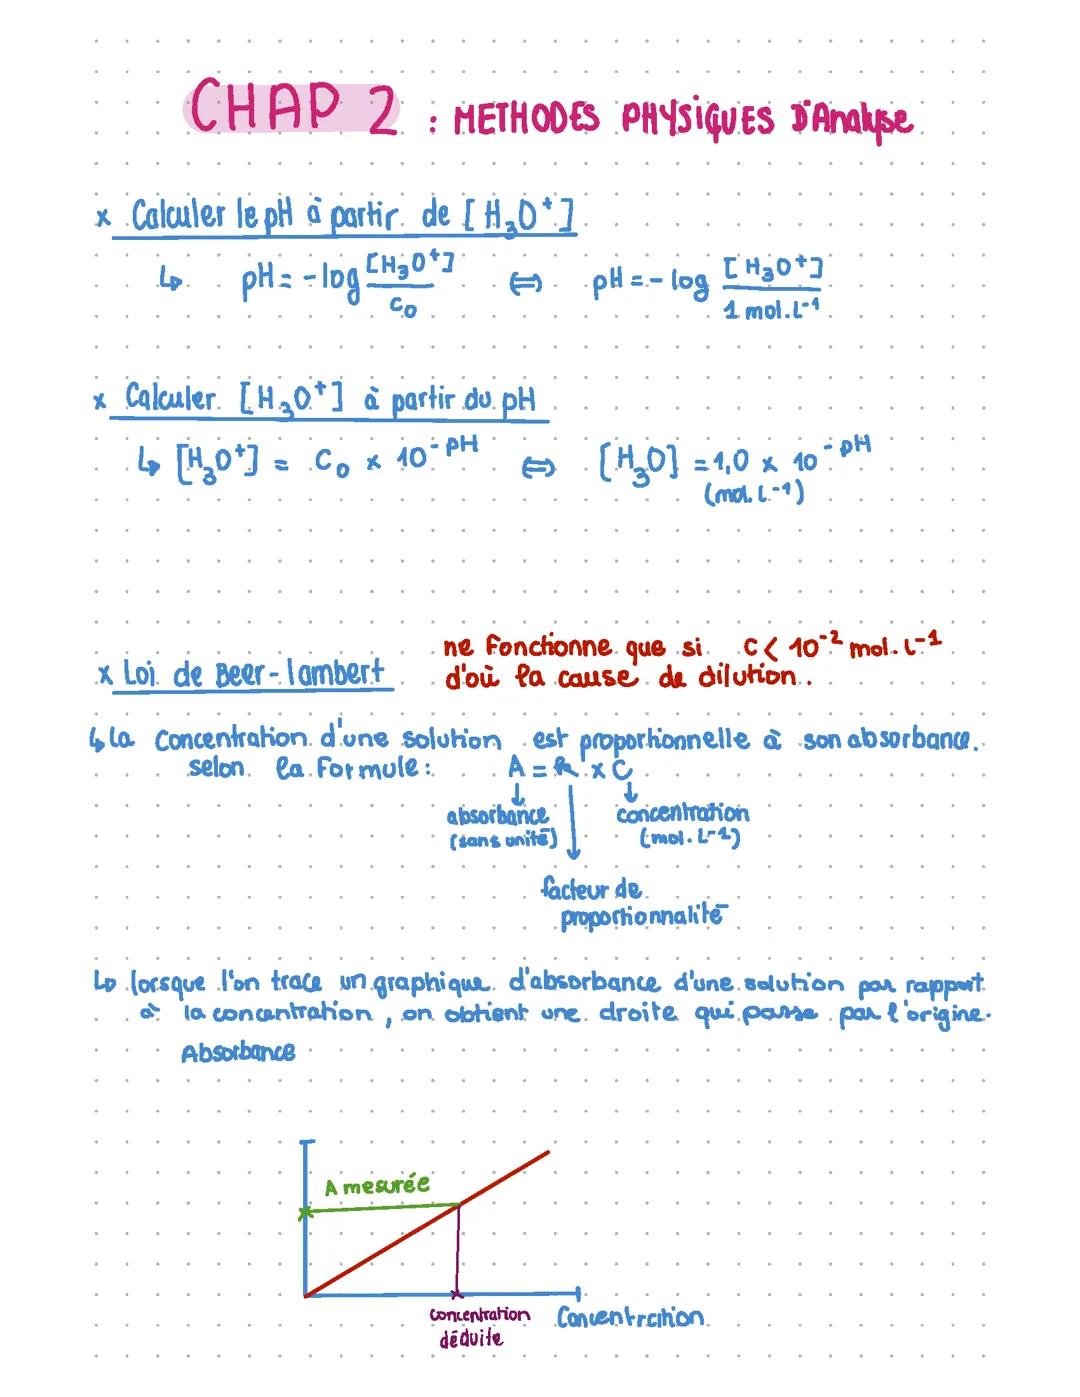 CHAP 2 : METHODES PHYSIQUES D'Analyse
x Calculer le pH à partir de [H₃O⁺]
↳ pH = -log [H₃O⁺]/C₀ ⇔ pH = - log [H₃O⁺]/1 mol.L⁻¹
x Calculer [H₃O⁺] à partir du pH
↳ [H₃O⁺] = C₀ x 10⁻ᵖᴴ ⇔ [H₃O] = 1,0 x 10⁻ᵖᴴ
(mol.L⁻¹)
ne fonctionne que si C < 10⁻² mol.L⁻¹
x Loi de Beer-lambert d'où la cause de dilution.
↳ la concentration d'une solution est proportionnelle à son absorbance.
selon la formule : A = k x C
absorbance concentration
(sans unité) (mol.L⁻¹)
facteur de
proportionnalité
↳ lorsque l'on trace un graphique d'absorbance d'une solution par rapport
à la concentration, on obtient une droite qui passe par l'origine.
Absorbance
A mesurée
concentration Concentration
déduite